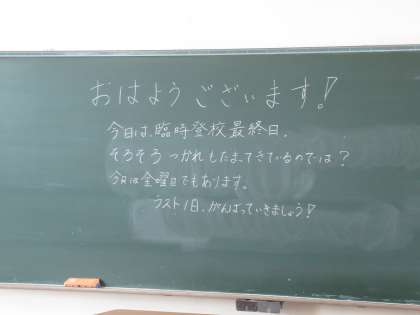 おはようございます!
今日は、臨時登校最終日。
そろそろつかれもたまってきているのでは?
今日は金曜日でもあります。
ラスト1日、がんばっていきましょう!